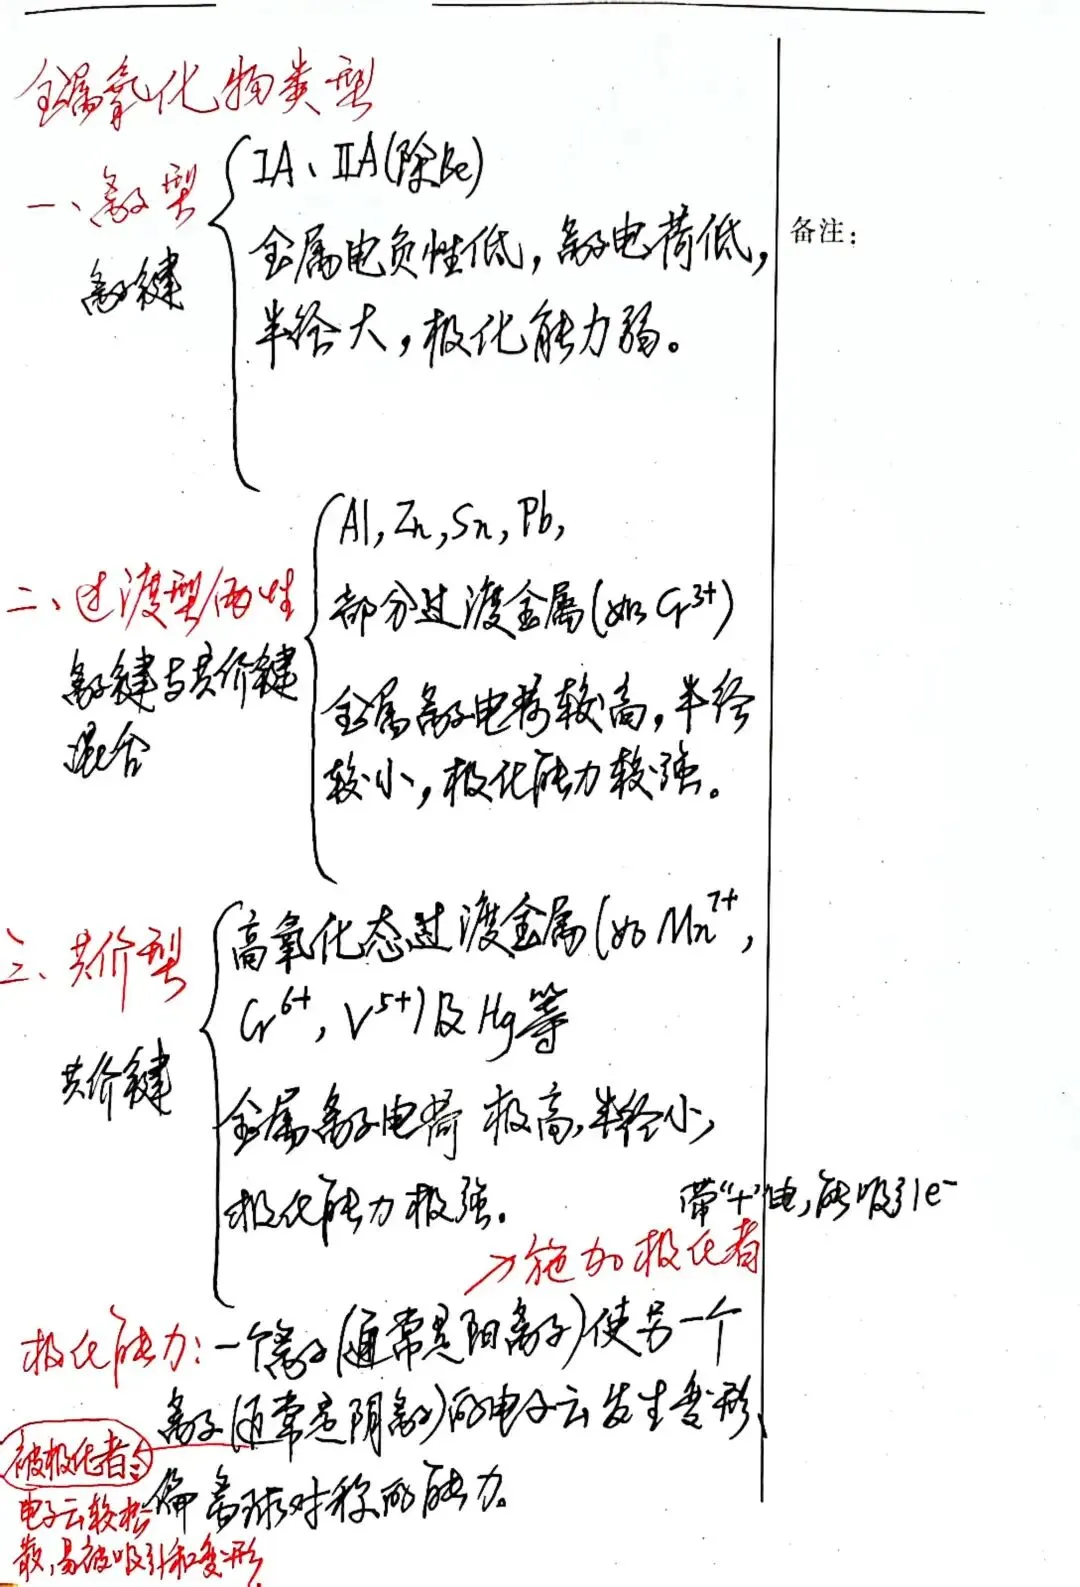 金属氧化物类型
一、离子型
离子键
IA、IIA(除Be)
金属电负性低，离子电荷低，
半径大，极化能力弱。
备注：
二、过渡型/两性
离子键与共价键
混合
Al, Zn, Sn, Pb,
部分过渡金属(如Cr³⁺)
金属离子电荷较高，半径
较小，极化能力较强。
三、共价型
共价键
高氧化态过渡金属(如Mn⁷⁺,
Cr⁶⁺, V⁵⁺)及Hg等
金属离子电荷极高，半径小，
极化能力极强。
带“+”电，能吸引e⁻
→施加极化者
极化能力：一个离子(通常是阳离子)使另一个
离子(通常是阴离子)的电子云发生变形、
偏离球对称的能力。
被极化者：
电子云较松
散，易被吸引和变形。